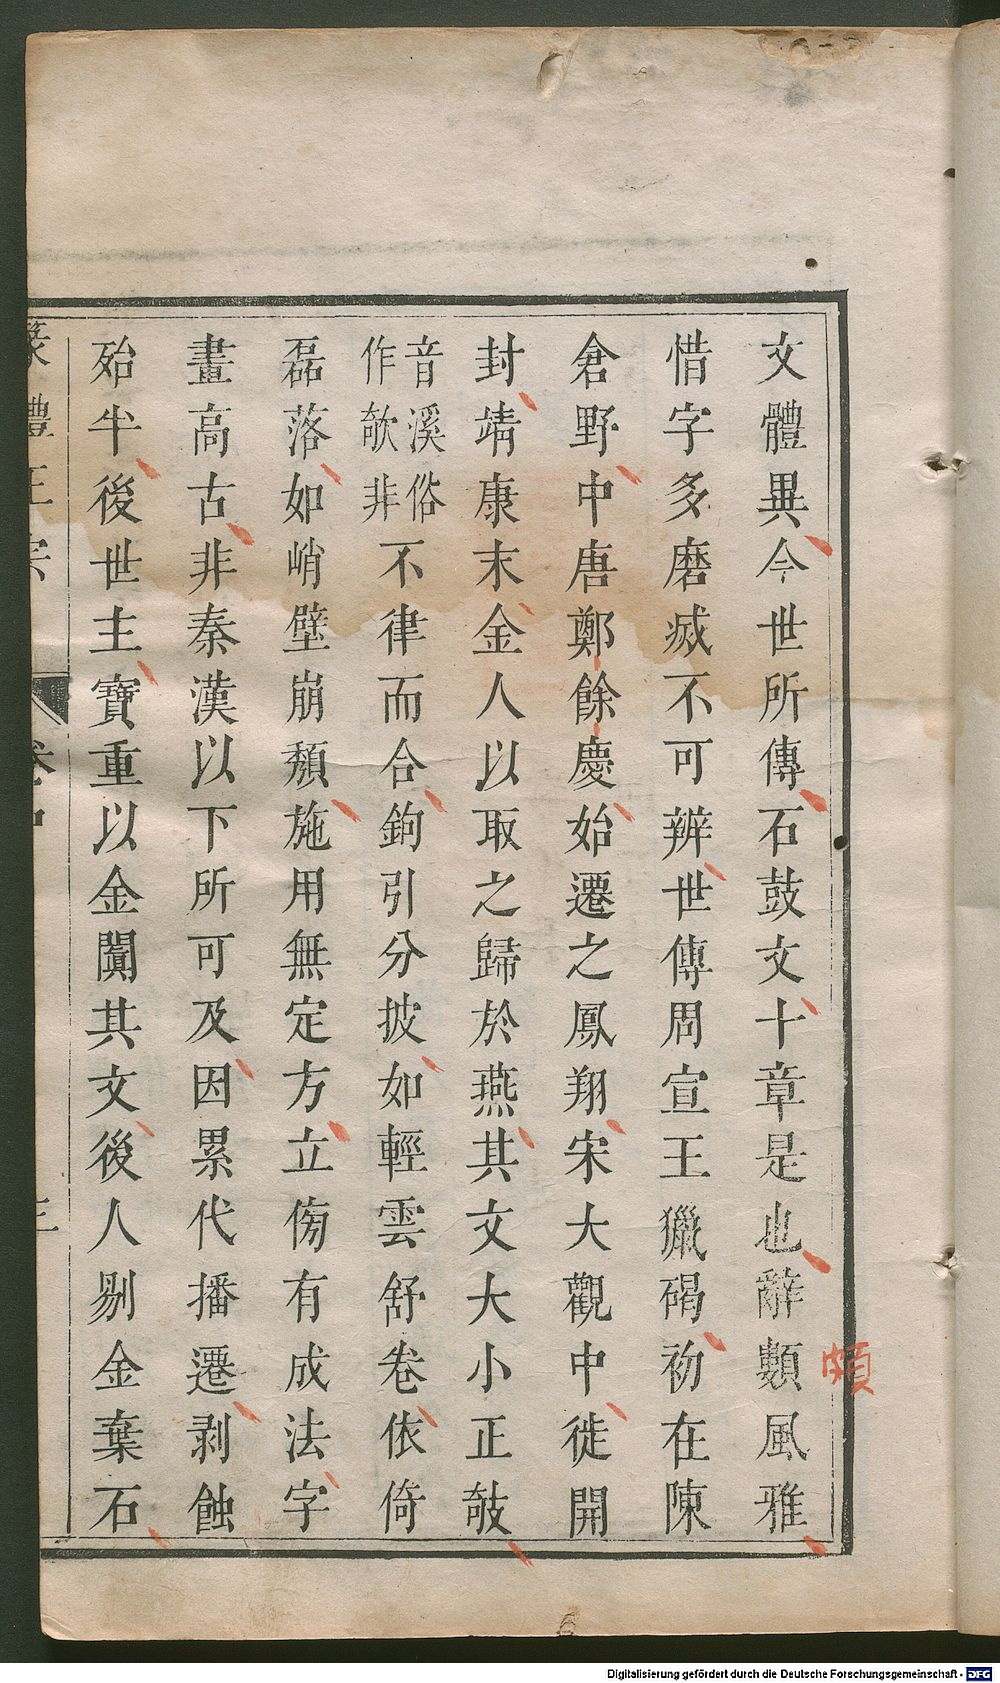 文體異今世所傳石鼓文十章是也辭數風雅
頗
惜字多磨滅不可辨世傳周宣王獵碣初在陳
倉野中唐鄭餘慶始遷之鳳翔宋大觀中徙開
封靖康末金人以取之歸於燕其文大小正攲
音溪俗
作欹非
不律而合鉤引分披如輕雲舒卷依倚
磊落如峭壁崩頹施用無定方立傍有成法字
畫高古非秦漢以下所可及因累代播遷剥蝕
殆半後世主寶重以金闐其文後人剔金棄石
篆體正宗 卷中 三
Digitalisierung gefördert durch die Deutsche Forschungsgemeinschaft - DFG